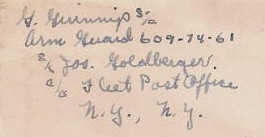 G. Guinnip S/c
Arm Guard 609-74-61
S/S Jos. Goldberger.
c/o Fleet Post Office
N.Y., N.Y.